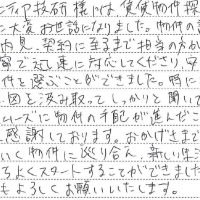 ディア技研 様には、賃貸物件探
に大変お世話になりました。物件の
内見、契約に至るまで担当の方が
寧で迅速に対応してくださり、
件を選ぶことができました。特に
図を汲み取ってしっかりと聞いて
ムーズに物件の手配が進んだこ
感謝しております。おかげさまで
いい物件に巡り合え、新しい生活
ちよくスタートすることができました
もよろしくお願いいたします。